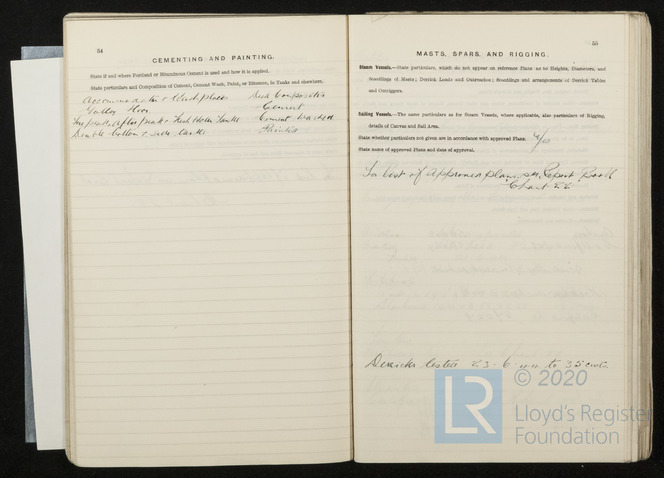 54
CEMENTING AND PAINTING.
State if and where Portland or Bituminous Cement is used and how it is applied.
State particulars and Composition of Cement, Cement Wash, Paint, or Bitumen, in Tanks and elsewhere.
Accommodation & Deck places Deck Composition
Galley Floor Cement
Fore peak, After peak & Fresh Water Tanks Cement Washed
Double bottom & tanks Painted
55
MASTS, SPARS, AND RIGGING.
Steam Vessels.—State particulars, which do not appear on reference Plans as to Heights, Diameters, and
Scantlings of Masts; Derrick Loads and Outreaches; Scantlings and arrangements of Derrick Tables
and Outriggers.
Sailing Vessels.—The same particulars as for Steam Vessels, where applicable, also particulars of Rigging,
details of Canvas and Sail Area.
State whether particulars not given are in accordance with approved Plans. Yes
State name of approved Plans and dates of approval.
For List of Approved plans, see Report Book
Derricks tested 23-6- to 35 cwts
© 2020
LR
Lloyd's Register
Foundation